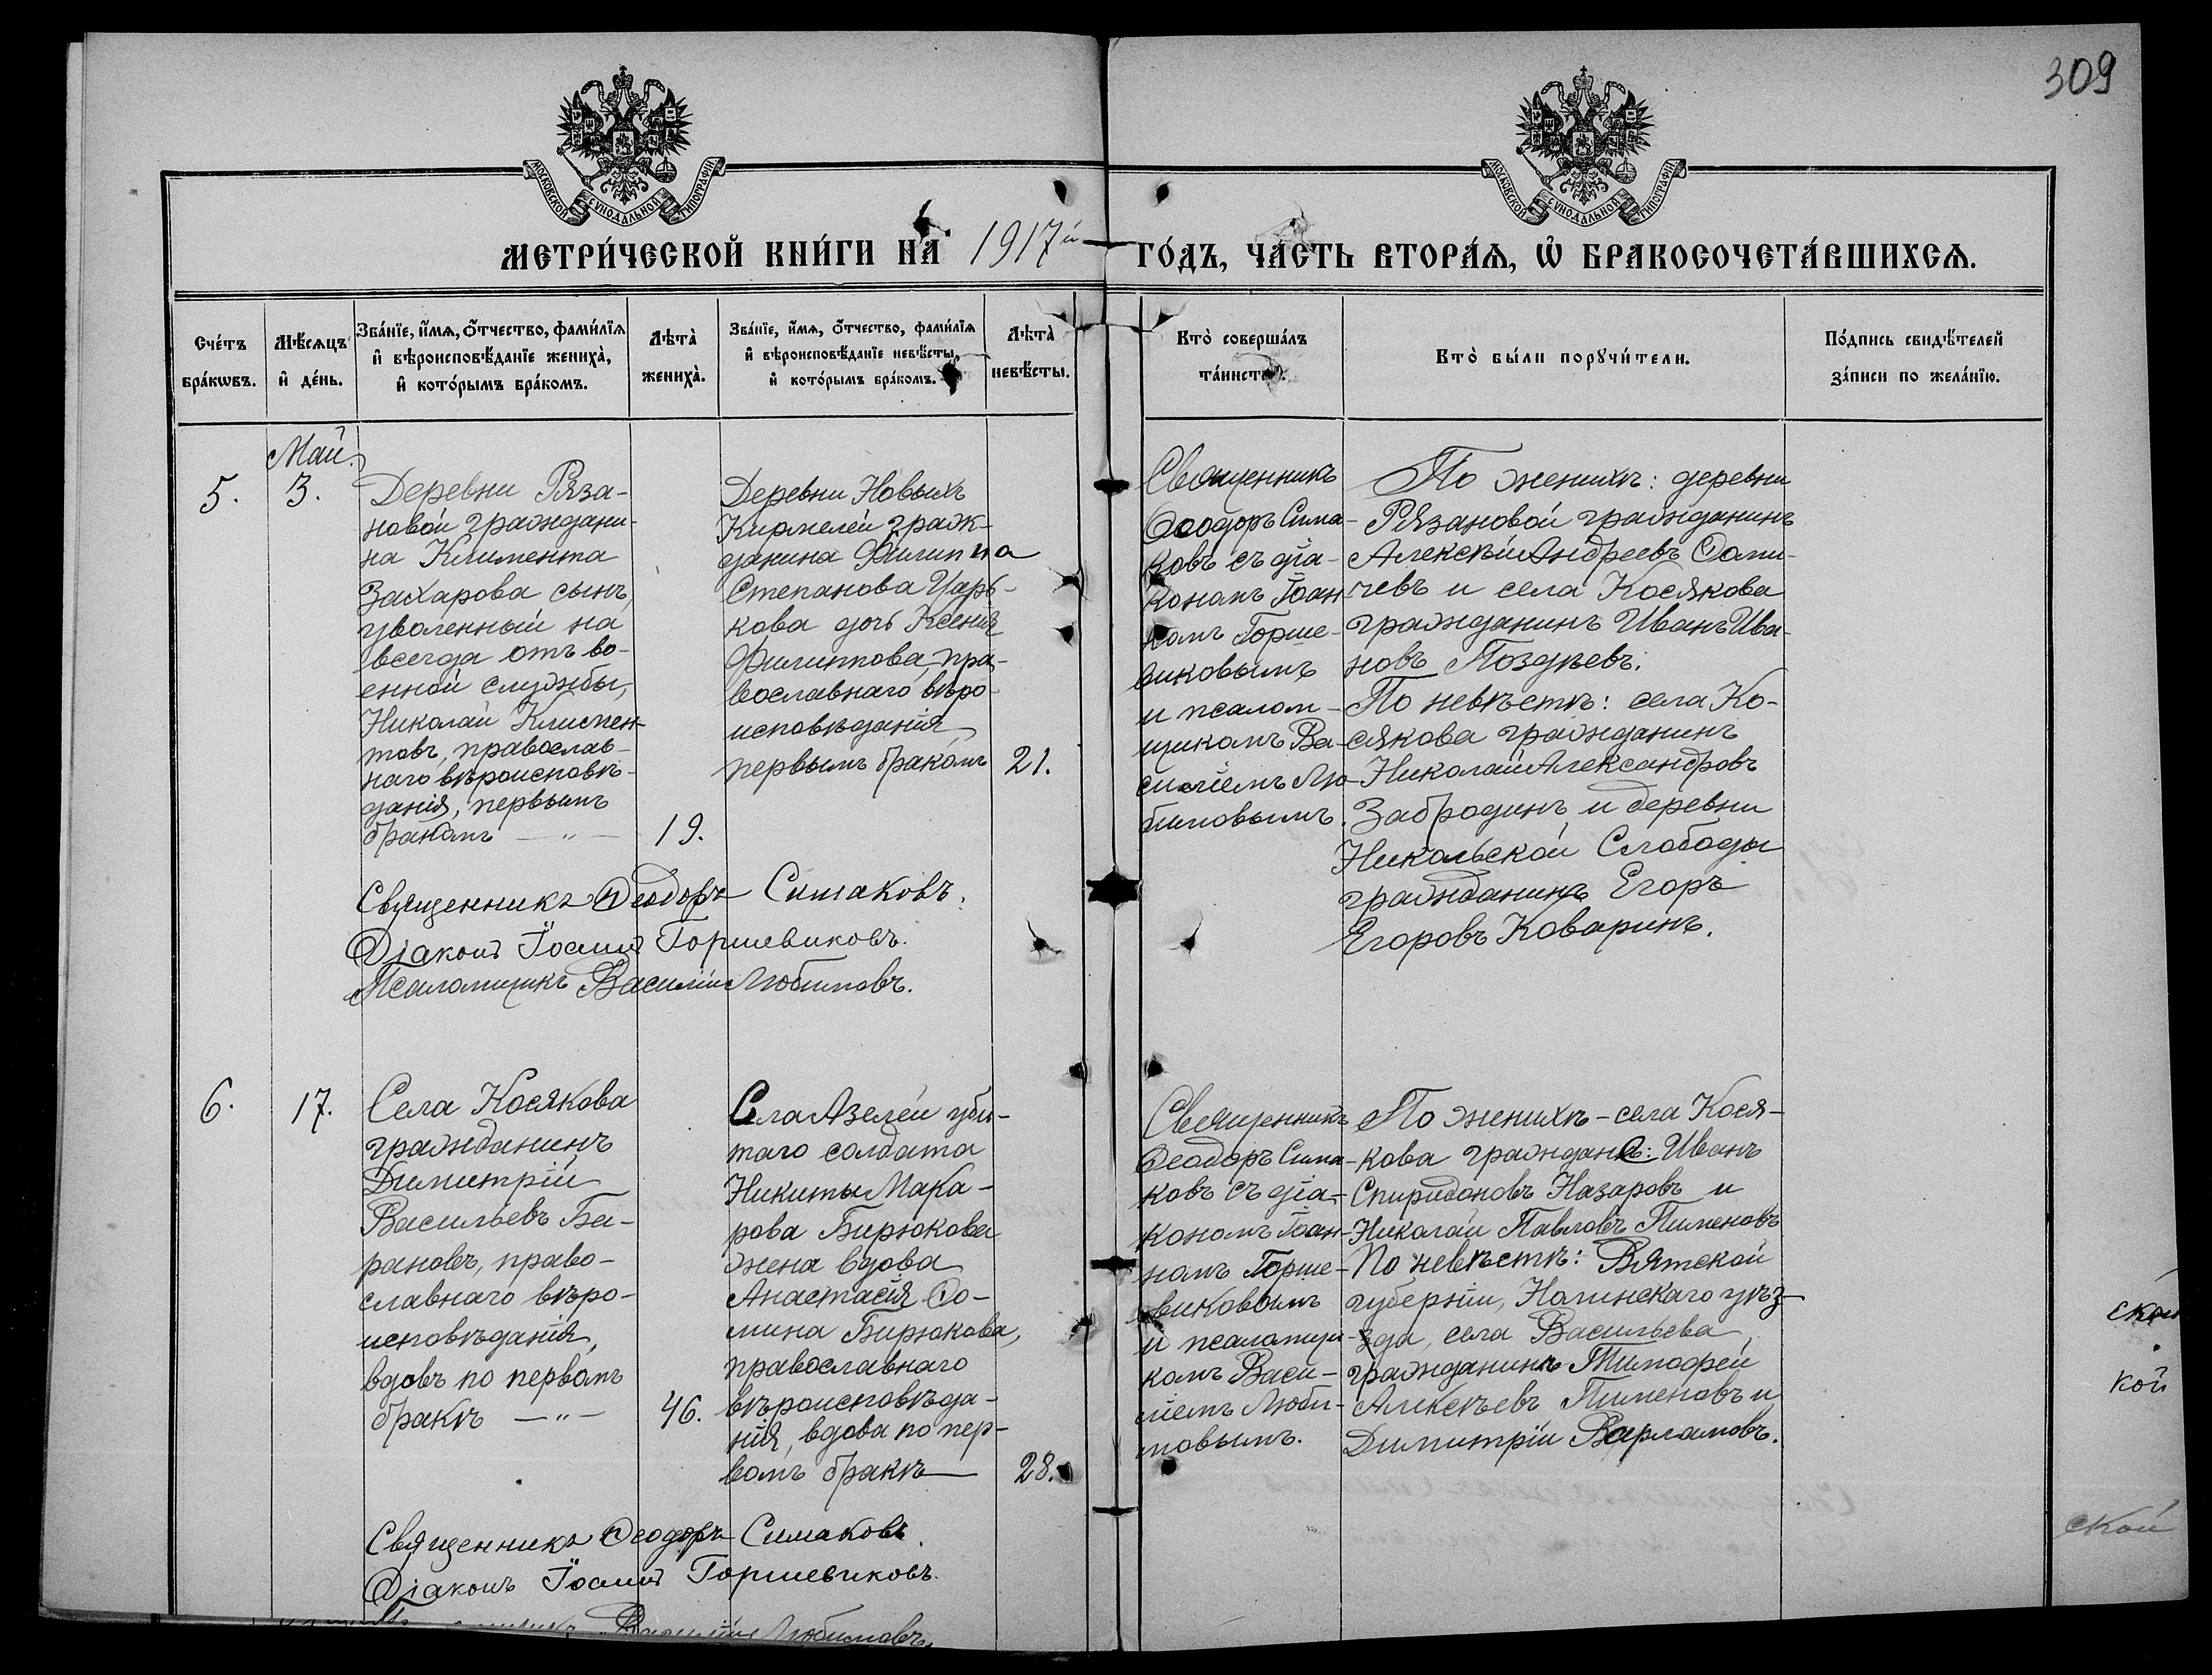 309
МОСКОВСКОЙ СУНОДАЛЬНОЙ ТИПОГРАФІИ
МОСКОВСКОЙ СУНОДАЛЬНОЙ ТИПОГРАФІИ
МЕТРИ́ЧЕСКОЙ КНИ́ГИ НА 1917й ГО́ДЪ, ЧА́СТЬ ВТОРА́Ѧ, Ѽ БРАКОСОЧЕТА́ВШИХСѦ.
Сче́тъ
бра́кѡвъ.
Мѣ́сѧцъ
и҆ де́нь.
Зва́нїе, и҆́мѧ, ѻ҆́тчество, фами́лїѧ
и҆ вѣроисповѣ́данїе жениха̀,
и҆ кото́рымъ бра́комъ.
Лѣ́та̀
жениха̀.
Зва́нїе, и҆́мѧ, ѻ҆́тчество, фами́лїѧ
и҆ вѣроисповѣ́данїе невѣ́сты,
и҆ кото́рымъ бра́комъ.
Лѣ́та̀
невѣ́сты.
Кто̀ соверша́лъ
та́инство.
Кто̀ бы́ли порꙋчи́тели.
По́дпись свидѣ́телей
за́писи по жела́нїю.
5.
Май.
3.
Деревни Ряза-
новой граждани-
на Климента
Захарова сынъ,
уволенный на
всегда отъ во-
енной службы,
Николай Климен-
товъ, православ-
наго вѣроисповѣ-
данія, первымъ
бракомъ — " —
19.
Деревни Новыхъ
Кирмелей граж-
данина Филиппа
Степанова Царь-
кова дочь Ксенія
Филиппова, пра-
вославнаго вѣро-
исповѣданія,
первымъ бракомъ
21.
Священникъ
Ѳеодоръ Сима-
ковъ съ діа-
кономъ Іоан-
номъ Горше-
виковымъ
и псалом-
щикомъ Ва-
силіемъ Лю-
бимовымъ.
По женихѣ: деревни
Рязановой гражданинъ
Алексѣй Андреевъ
и села Косякова
гражданинъ Иванъ Ива-
новъ Поздѣевъ.
По невѣстѣ: села Ко-
сякова гражданинъ
Николай Александровъ
Забродинъ и деревни
Никольской Слободы
гражданинъ Егоръ
Егоровъ Коваринъ.
Священникъ Ѳеодоръ Симаковъ.
Діаконъ Іоаннъ Горшевиковъ.
Псаломщикъ Василій Любимовъ.
6.
17.
Села Косякова
гражданинъ
Димитрій
Васильевъ Ба-
рановъ, право-
славнаго вѣро-
исповѣданія,
вдовъ по первомъ
бракѣ — " —
46.
Села Азелей уби-
таго солдата
Никиты Мака-
рова Бирюкова
жена вдова
Анастасія Ѳо-
мина Бирюкова,
православнаго
вѣроисповѣда-
нія, вдова по пер-
вомъ бракѣ —
28.
Священникъ
Ѳеодоръ Сима-
ковъ съ діа-
кономъ Іоан-
номъ Горше-
виковымъ
и псаломщи-
комъ Васи-
ліемъ Люби-
мовымъ.
По женихѣ – села Кося-
кова граждане: Иванъ
Спиридоновъ Назаровъ и
Николай Павловъ Пименовъ
По невѣстѣ: Вятской
губерніи, Нолинскаго уѣз-
зда, села Васильева,
гражданинъ Тимофей
Алексѣевъ Пименовъ и
Димитрій Варламовъ.
Священникъ Ѳеодоръ Симаковъ.
Діаконъ Іоаннъ Горшевиковъ.
Василій Любимовъ.
ской
кой
ской